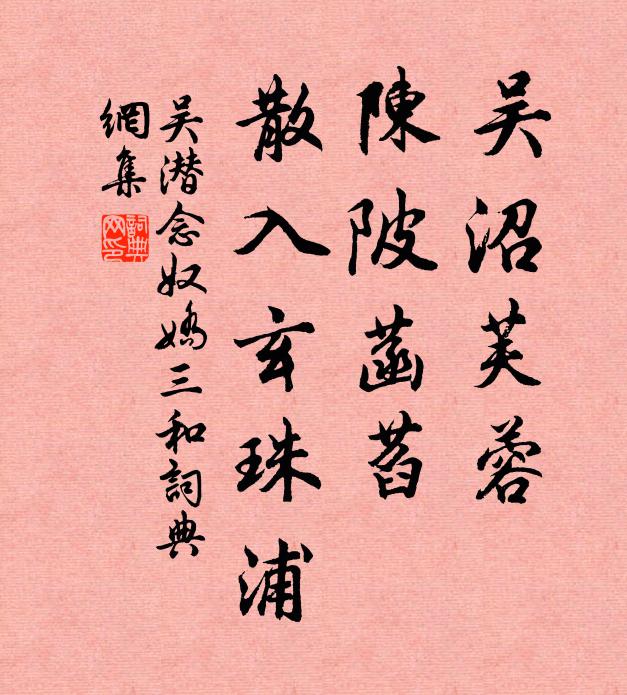 吴沼芙蓉
陳陂菡萏
散入玄珠浦
吴潜念奴嬌三和詞典
網集
詞典
网印